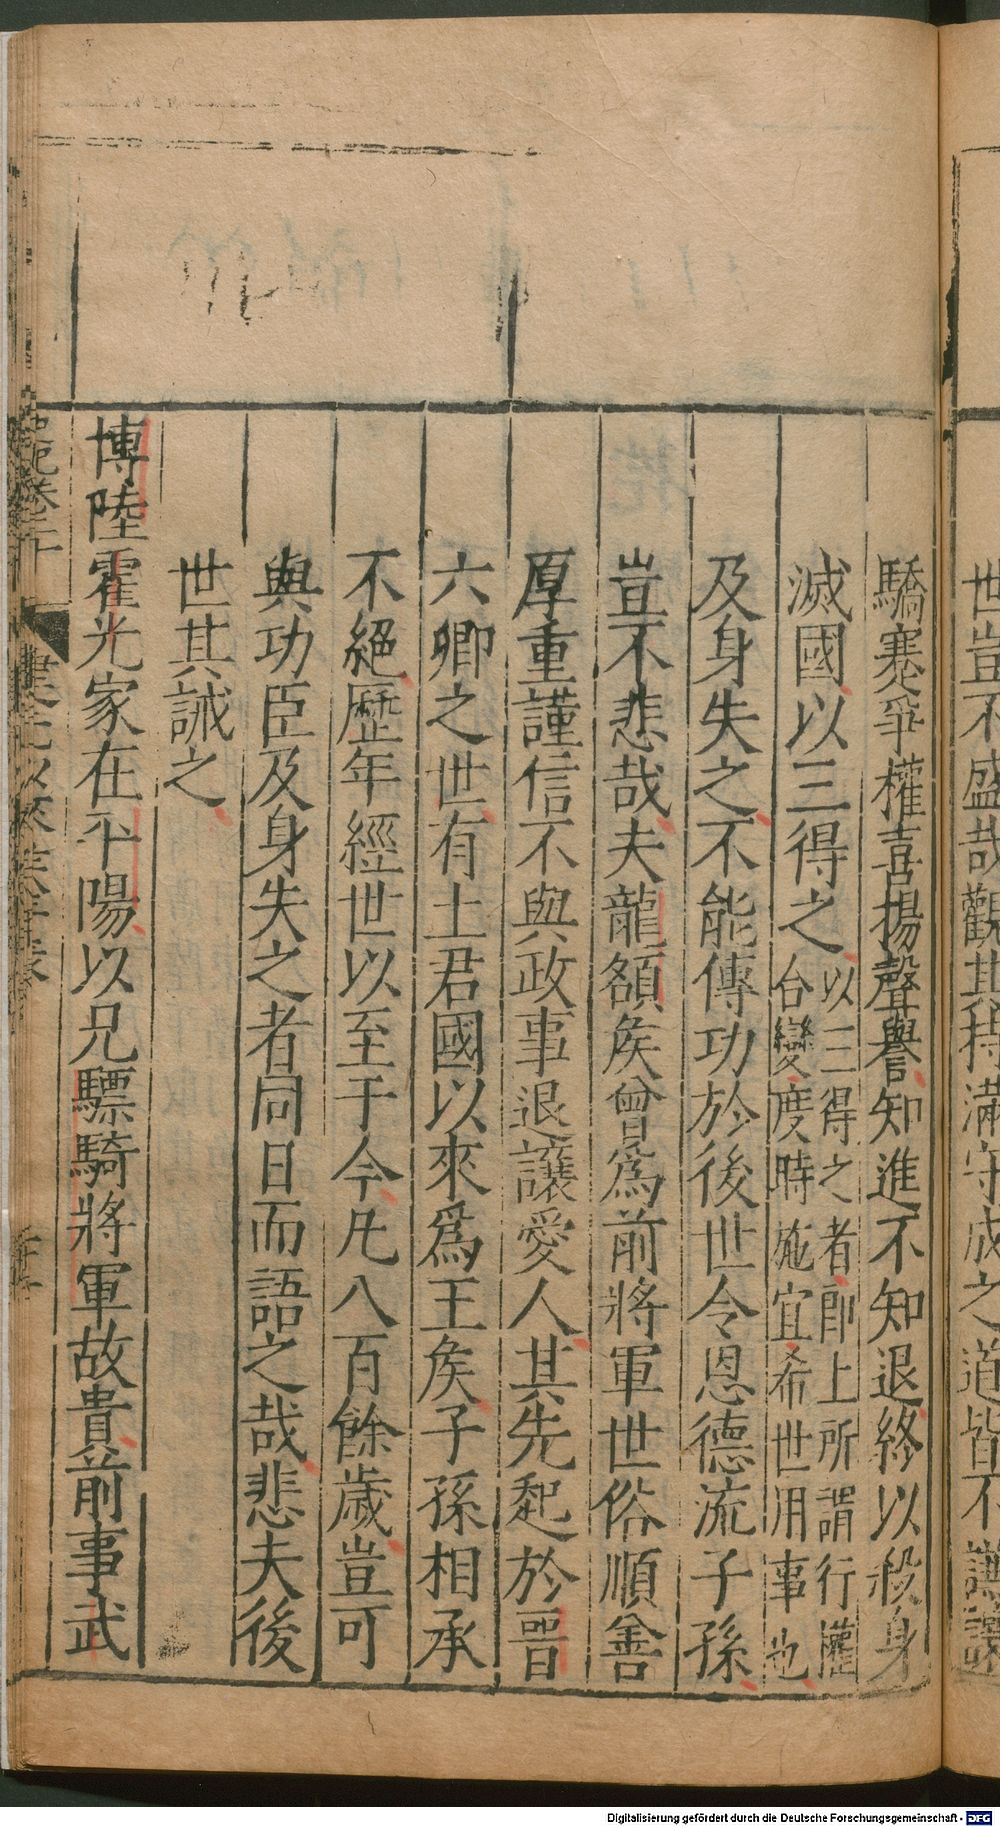 世豈不盛哉觀其持滿守成之道皆不謙讓
驕蹇爭權喜揚聲譽知進不知退終以殺身
滅國以三得之以三得之者即上所謂行權
台變度時施宜希世用事也
及身失之不能傳功於後世令恩德流子孫
豈不悲哉夫龍頟矦曾爲前將軍世俗順善
厚重謹信不與政事退讓愛人其先起於晋
六卿之世有土君國以來爲王矦子孫相承
不絕歷年經世以至于今凢八百餘歲豈可
與功臣及身失之者同日而語之哉悲夫後
世其誡之
博陸霍光家在平陽以兄驃騎將軍故貴前事武
史記卷二十
建元以來矦者年表
Digitalisierung gefördert durch die Deutsche Forschungsgemeinschaft - DFG